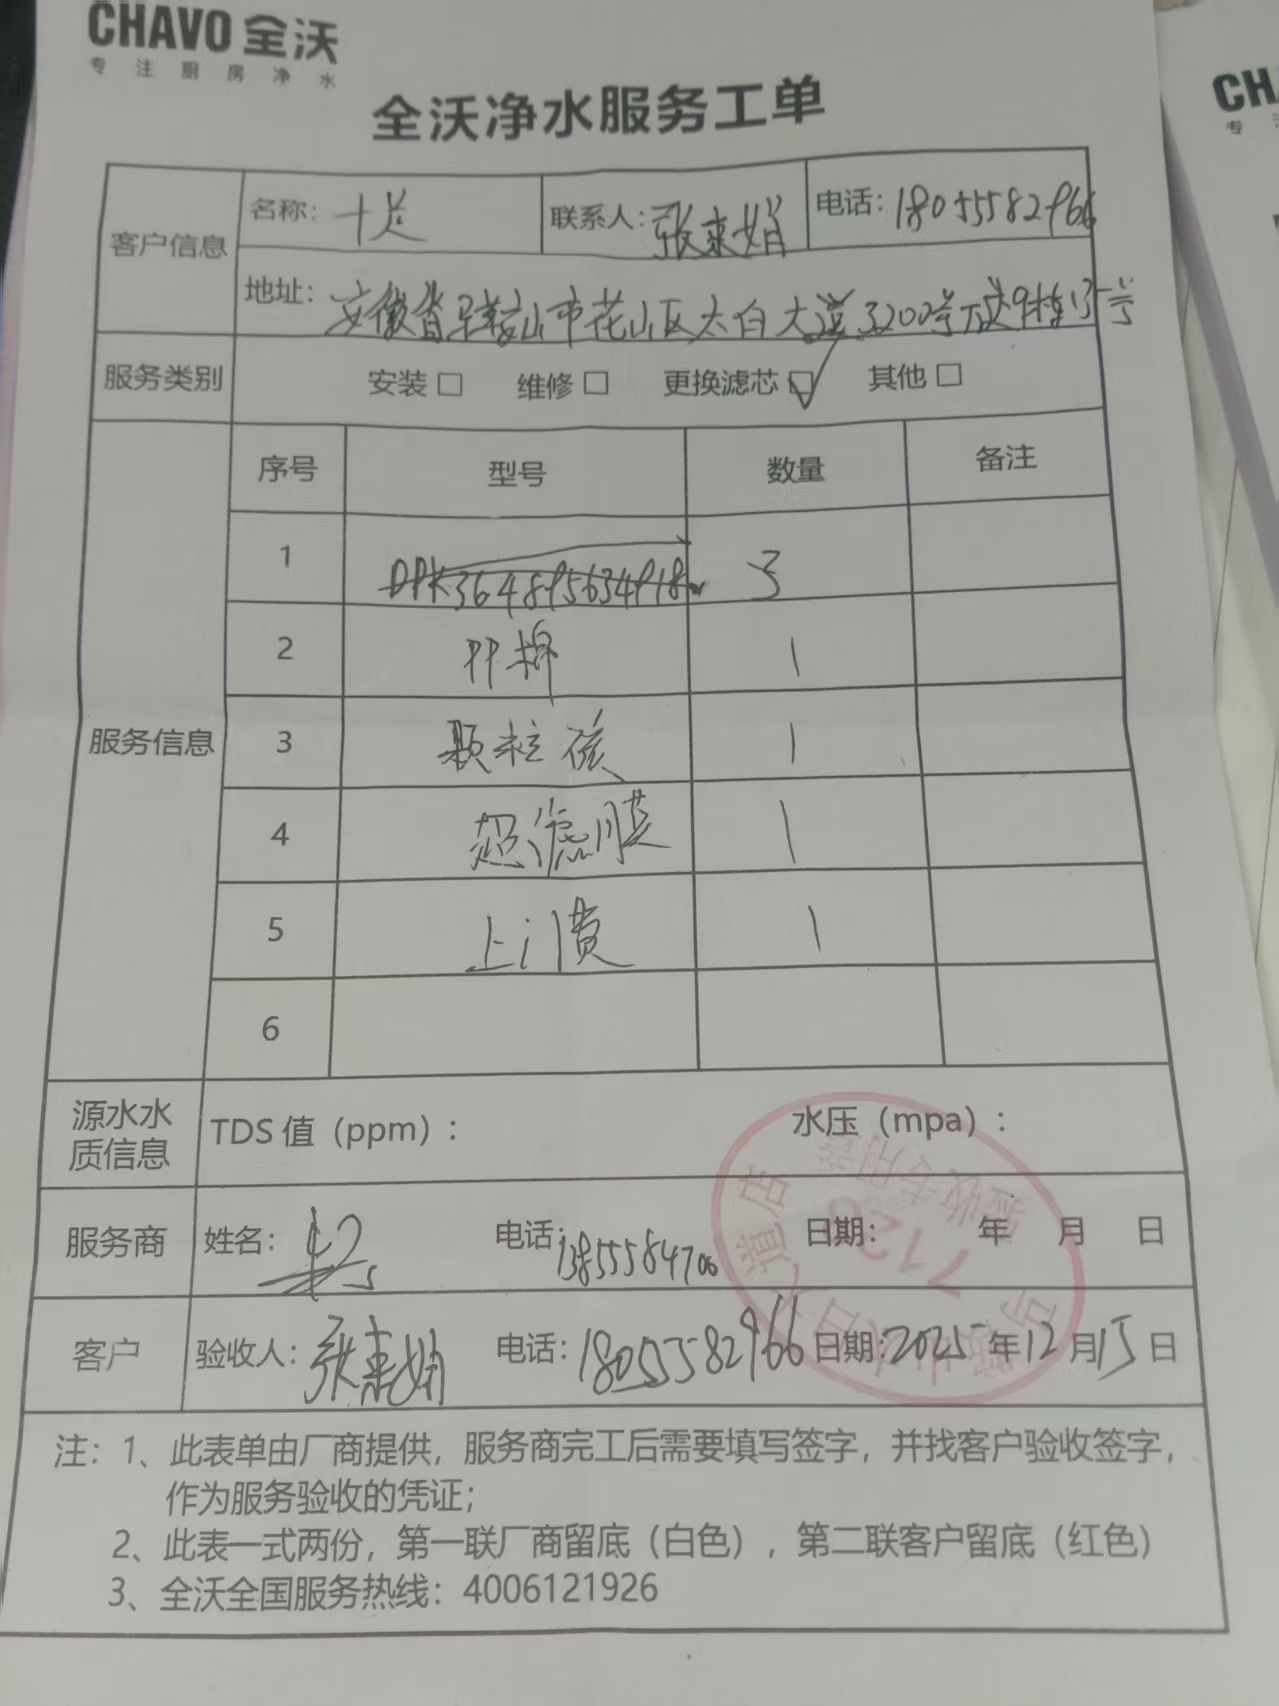 CHAVO 全沃
专注厨房净水
CHA
专
全沃净水服务工单
客户信息
名称：
联系人：张来娟
电话：18055582966
地址：安徽省马鞍山市花山区太白大道3200号万达9栋
服务类别
安装□ 维修□ 更换滤芯☑ 其他□
服务信息
序号 型号 数量 备注
1 3
2 PP棉 1
3 颗粒碳 1
4 超滤膜 1
5 上门费 1
6
源水水质信息
TDS 值（ppm）： 水压（mpa）：
服务商 姓名： 电话：13855584706 日期： 年 月 日
客户 验收人：张来娟 电话：18055582966 日期：2025年12月15日
验收专用章
7128
注：1、此表单由厂商提供，服务商完工后需要填写签字，并找客户验收签字，
作为服务验收的凭证；
2、此表一式两份，第一联厂商留底（白色），第二联客户留底（红色）
3、全沃全国服务热线：4006121926